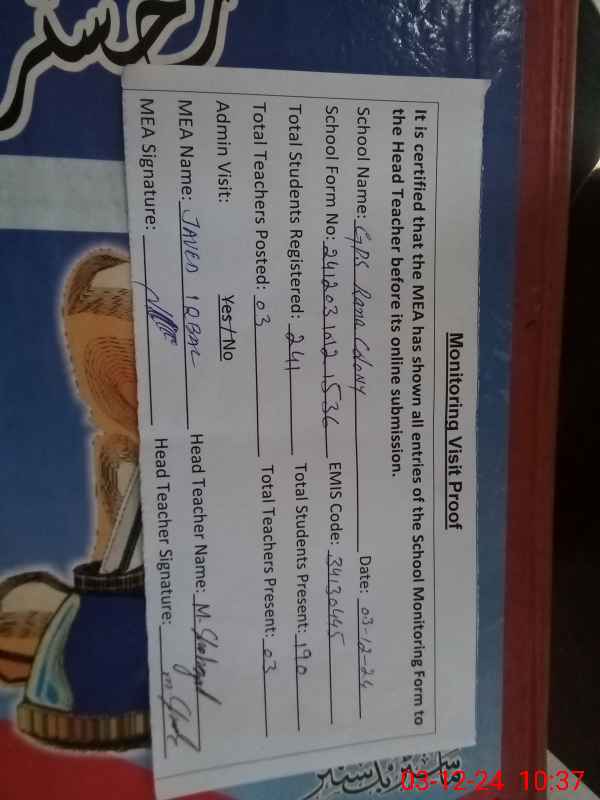 Monitoring Visit Proof
It is certified that the MEA has shown all entries of the School Monitoring Form to
the Head Teacher before its online submission.
School Name: GPS Rana Colony Date: 03-12-24
School Form No: 24120310121536 EMIS Code: 34130445
Total Students Registered: 241 Total Students Present: 190
Total Teachers Posted: 03 Total Teachers Present: 03
Admin Visit: Yes/No
MEA Name: JAVED IQBAL Head Teacher Name: M.
MEA Signature: Head Teacher Signature:
03-12-24 10:37